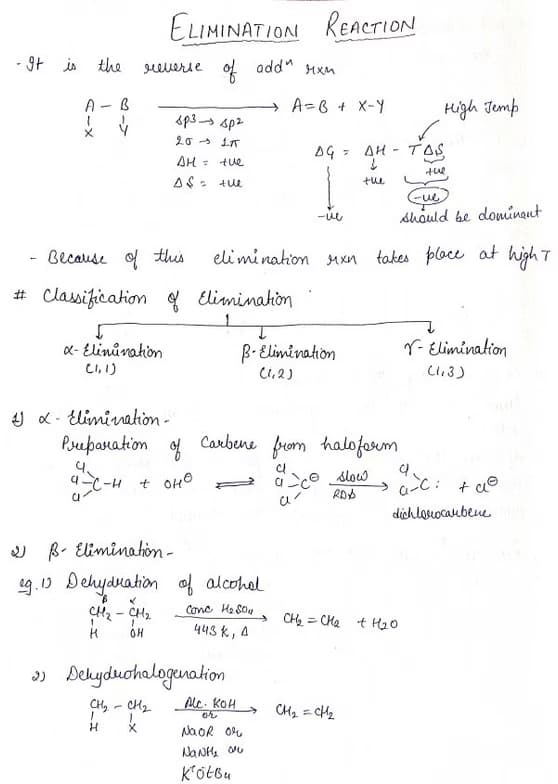 ELIMINATION REACTION
- It is the reverse of addⁿ rxn
A – B ⟶ A=B + X–Y High Temp
X Y
sp3 → sp2
2σ → 1π
ΔH = +ve
ΔS = +ve
ΔG = ΔH - TΔS
+ve
+ve
-ve
-ve
should be dominant
- Because of this elimination rxn takes place at high T
# Classification of Elimination
α-Elimination β-Elimination γ-Elimination
(1,1) (1,2) (1,3)
1) α-Elimination-
Preparation of Carbene from haloform
Cl Cl Cl
Cl C-H + OH⊖ ⇌ Cl C⊖ slow ⟶ Cl C: + Cl⊖
Cl Cl RDS
dichlorocarbene
2) β-Elimination-
eg.1) Dehydration of alcohol
β α
CH₂ – CH₂ Conc H₂SO₄ ⟶ CH₂=CH₂ + H₂O
H OH 443K, Δ
2) Dehydrohalogenation
CH₂ – CH₂ Alc. KOH ⟶ CH₂=CH₂
H X or
NaOR or
NaNH₂ or
K⁺ŌtBu